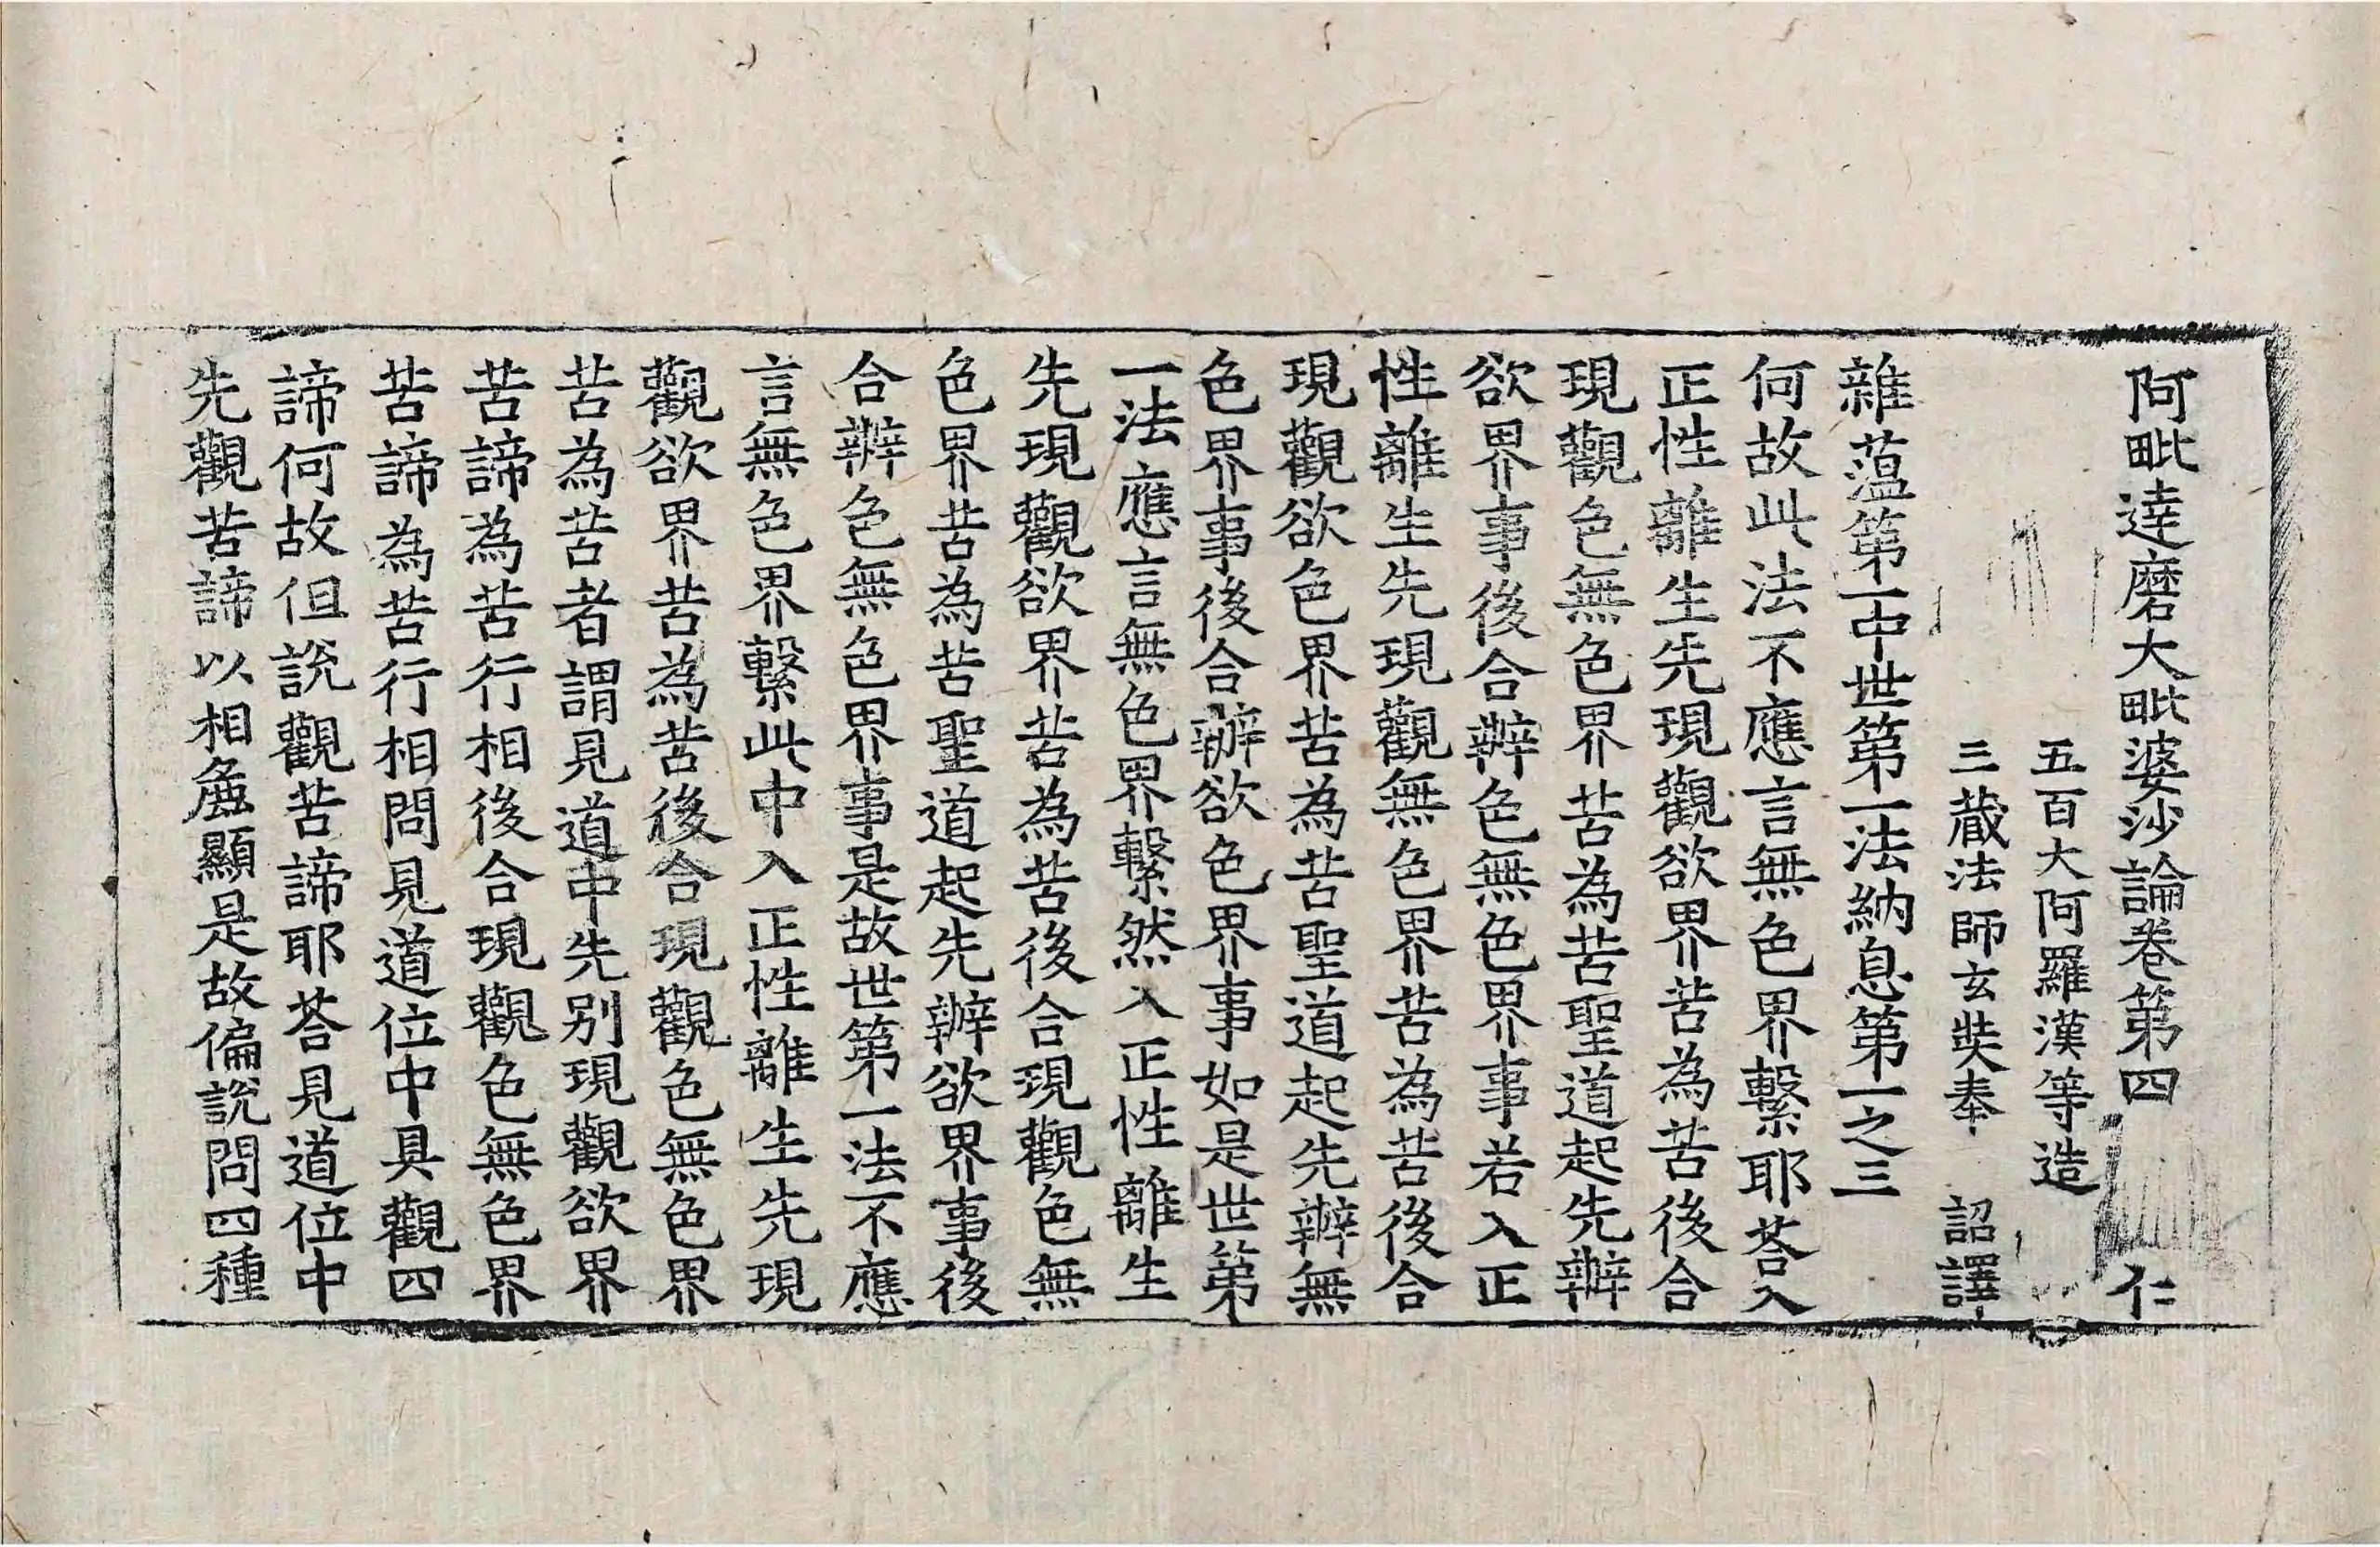 阿毗達磨大毗婆沙論卷第四 仁
五百大阿羅漢等造
三藏法師玄奘奉 詔譯
雜蕰第一中世第一法納息第一之三
何故此法不應言無色界繫耶荅入
正性離生先現觀欲界苦為苦後合
現觀色無色界苦為苦聖道起先辦
欲界事後合辦色無色界事若入正
性離生先現觀無色界苦為苦後合
現觀欲色界苦為苦聖道起先辦無
色界事後合辦欲色界事如是世第
一法應言無色界繫然入正性離生
先現觀欲界苦為苦後合現觀色無
色界苦為苦聖道起先辦欲界事後
合辦色無色界事是故世第一法不應
言無色界繫此中入正性離生先現
觀欲界苦為苦後合現觀色無色界
苦為苦者謂見道中先別現觀欲界
苦諦為苦行相後合現觀色無色界
苦諦為苦行相問見道位中具觀四
諦何故但說觀苦諦耶荅見道位中
先觀苦諦以相麁顯是故偏說問四種